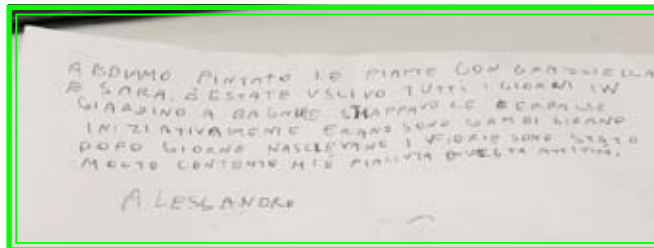 ABBIAMO PINTATO LE PIANTE CON GRAZIELLA
E SARA. D ESTATE USCIVO TUTTI I GIORNI IN
GIARDINO A BAGNARE STRAPPAVO LE ERBACCE
INIZIATIVAMENTE ERANO SONO GAMBI GIORNO
DOPO GIORNO NASCEVANO I FIORI E SONO STATO
MOLTO CONTENTO MI È PIACIUTA QUESTA ATTIVITÀ.
ALESSANDRO